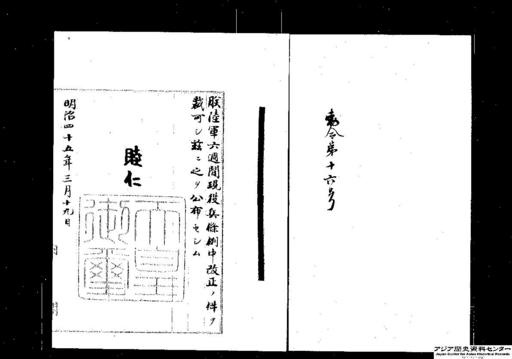 勅令第十六号
朕陸軍六週間現役兵條例中改正ノ件ヲ
裁可シ茲ニ之ヲ公布セシム
睦仁
天皇御璽
明治四十五年三月十九日
アジア歴史資料センター
Japan Center for Asian Historical Records